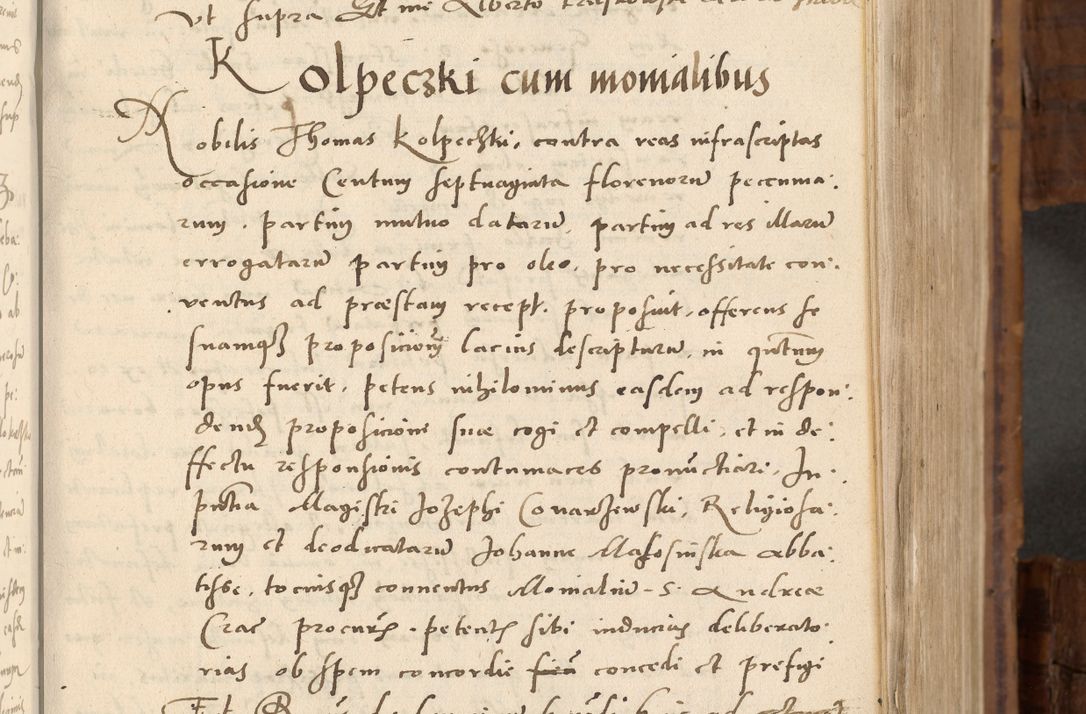 Vt supra Et me Alberto
Kolpeczki cum monialibus
Nobilis Thomas Kolpechki, contra reas infrascriptas
occasione Centum septuaginta florenorum peccunia:
rum, partim mutuo datarum, partim ad res illarum
errogatarum partim pro oleo, pro necessitate con:
ventus ad præstam recept. proposuit, offerens se
suamque propositionem lacius descripturum, in quantum
opus fuerit, petens nihilominus easdem ad respon:
dendum propositioni suæ cogi et compelli, et in de:
ffectu responsionis contumaces pronunctiari, In
pntia Magistri Jozephi Conarzewski, Religiosa:
rum et deodicatarum Johanne Makosinska Abba:
tisse, tociusque conventus Monialium S. Andreæ
Crac procuris petentis sibi inducias deliberato:
rias ob spem concordie concedi et prefigi